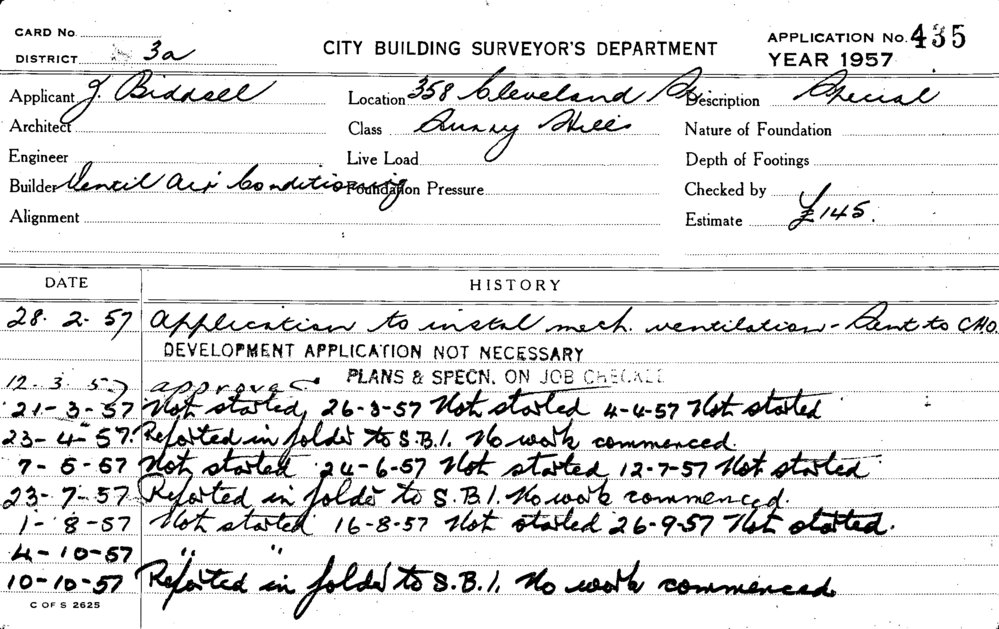 CARD No.
DISTRICT 3a
CITY BUILDING SURVEYOR'S DEPARTMENT
APPLICATION No. 435
YEAR 1957
Applicant J. Biddsell Location 358 Cleveland St Description Special
Architect Class Surry Hills Nature of Foundation
Engineer Live Load Depth of Footings
Builder Ventil Air Conditioning Foundation Pressure Checked by
Alignment Estimate £145.
DATE HISTORY
28. 2. 57 Application to instal mech. ventilation - Sent to CHO.
DEVELOPMENT APPLICATION NOT NECESSARY
12. 3. 57 approved PLANS & SPECN. ON JOB CHECKED
21-3-57 Not started, 26-3-57 Not started 4-4-57 Not started
23-4-57. Reported in folder to S.B.I. No work commenced.
7-5-57 Not started 24-6-57 Not started 12-7-57 Not started
23-7-57 Reported in folder to S.B.I. No work commenced.
1-8-57 Not started 16-8-57 Not started 26-9-57 Not started.
4-10-57 " "
10-10-57 Reported in folder to S.B.I. No work commenced.
C OF S 2625